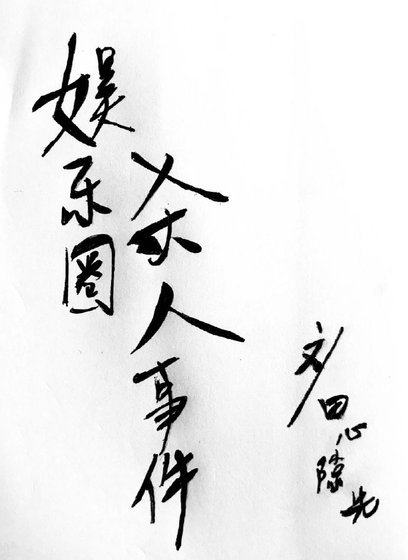 娱乐圈
杀人事件
文/田心隙先